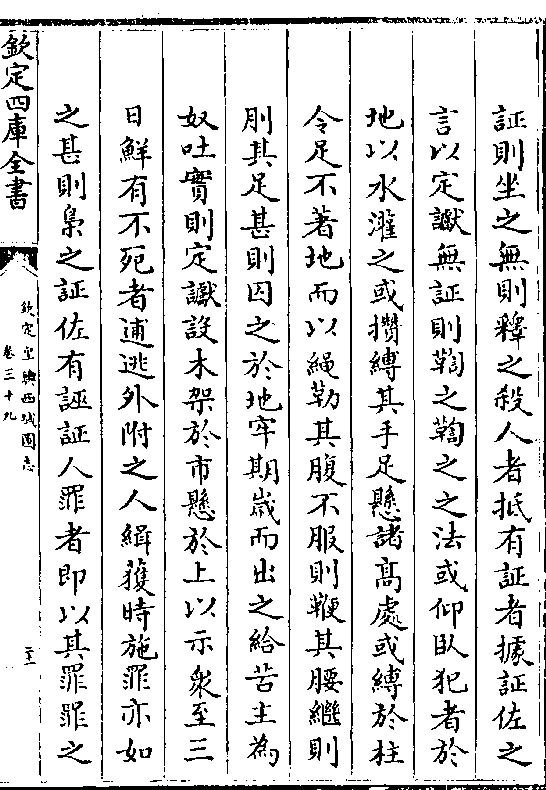 証則坐之無則釋之殺人者抵有証者據証佐之
言以定讞無証則鞫之鞫之之法或仰臥犯者於
地以水灌之或攢縛其手足懸諸髙處或縛於柱
令足不著地而以繩勒其腹不服則鞭其腰繼則
刖其足甚則囚之於地牢期嵗而出之給苦主為
奴吐實則定讞設木架於市懸於上以示衆至三
日鮮有不死者逋逃外附之人緝獲時施罪亦如
之甚則梟之証佐有誣証人罪者即以其罪罪之
欽定四庫全書
欽定皇輿西域圖志
卷三十九